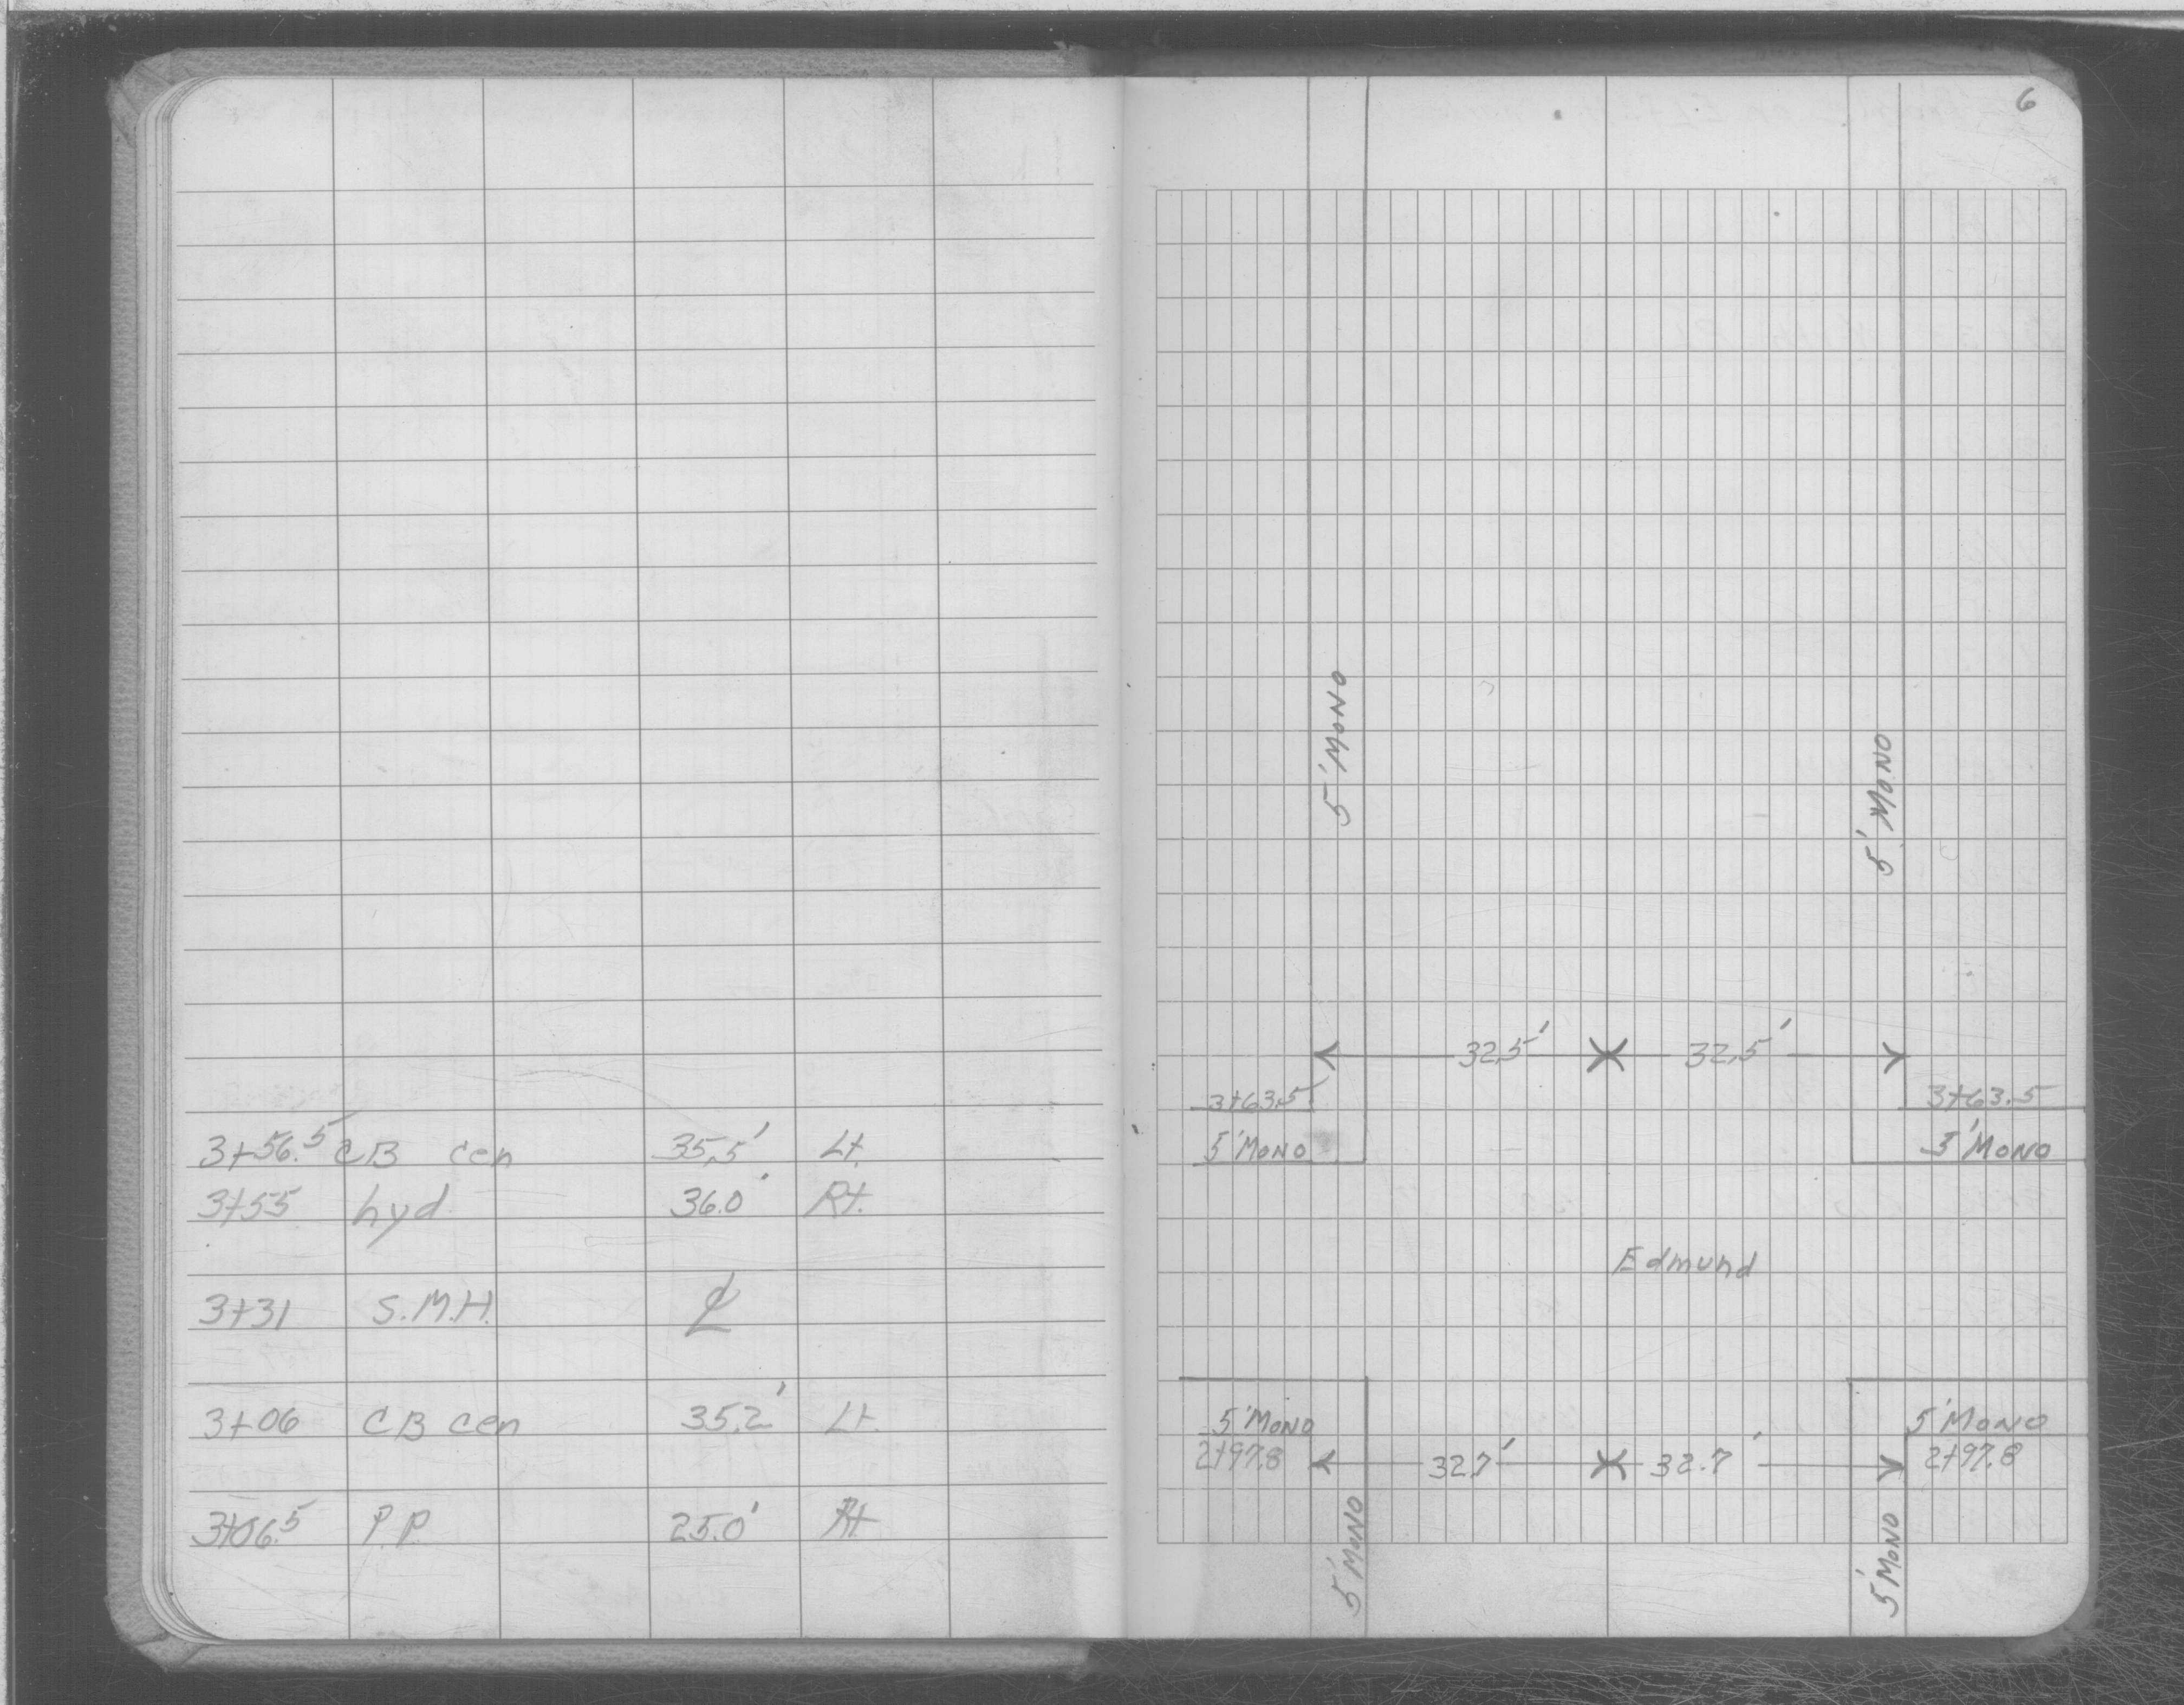 3+56.5 CB cen 35.5' Lt.
3+55 hyd. 36.0' Rt.
3+31 S.M.H. ℄
3+06 CB cen 35.2' Lt.
3+06.5 P.P. 25.0' Rt
6
5' MONO
5' MONO
32.5' 32.5'
3+63.5 3+63.5
5' MONO 5' MONO
Edmund
5' MONO 5' MONO
2+97.8 32.7' 32.7' 2+97.8
5' MONO 5' MONO